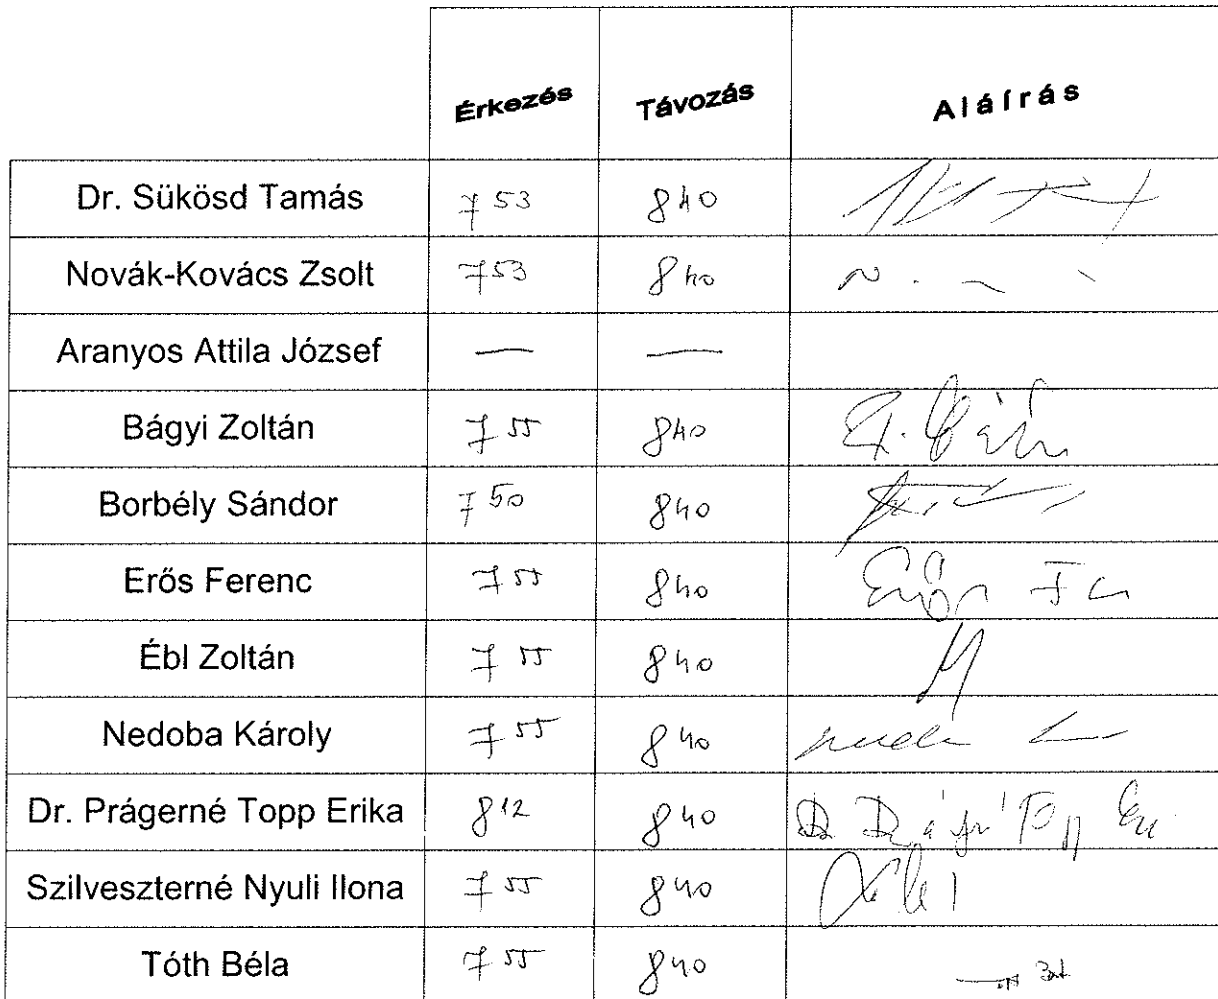 Érkezés Távozás Aláírás
Dr. Sükösd Tamás 7 53 840
Novák-Kovács Zsolt 753 840
Aranyos Attila József — —
Bágyi Zoltán 7 55 840
Borbély Sándor 7 50 840
Erős Ferenc 7 55 840 Erős F
Ébl Zoltán 7 55 840
Nedoba Károly 7 55 840
Dr. Prágerné Topp Erika 812 840
Szilveszterné Nyuli Ilona 7 55 840
Tóth Béla 7 55 840